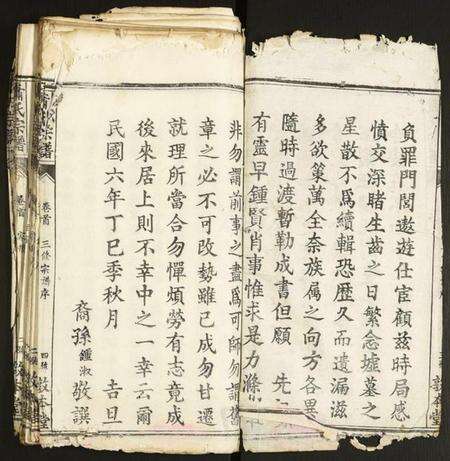 負罪門閭遨遊仕宦顧茲時局感
憤交深睹生齒之日繁念墟墓之
星散不為續輯恐歷久而遺漏滋
多欲策萬全奈族属之向方各異
隨時過渡暫勒成書但願　先
有靈早鍾賢肖事惟求是力滌
非勿謂前事之盡為可師勿謂舊
章之必不可改埶雖已成勿甘遷
就理所當合勿憚煩勞有志竟成
後來居上則不幸中之一幸云爾
民國六年丁巳季秋月　　吉旦
裔孫鍾淑敬譔
氏宗譜
卷首
三修宗譜序
四修
敦本堂